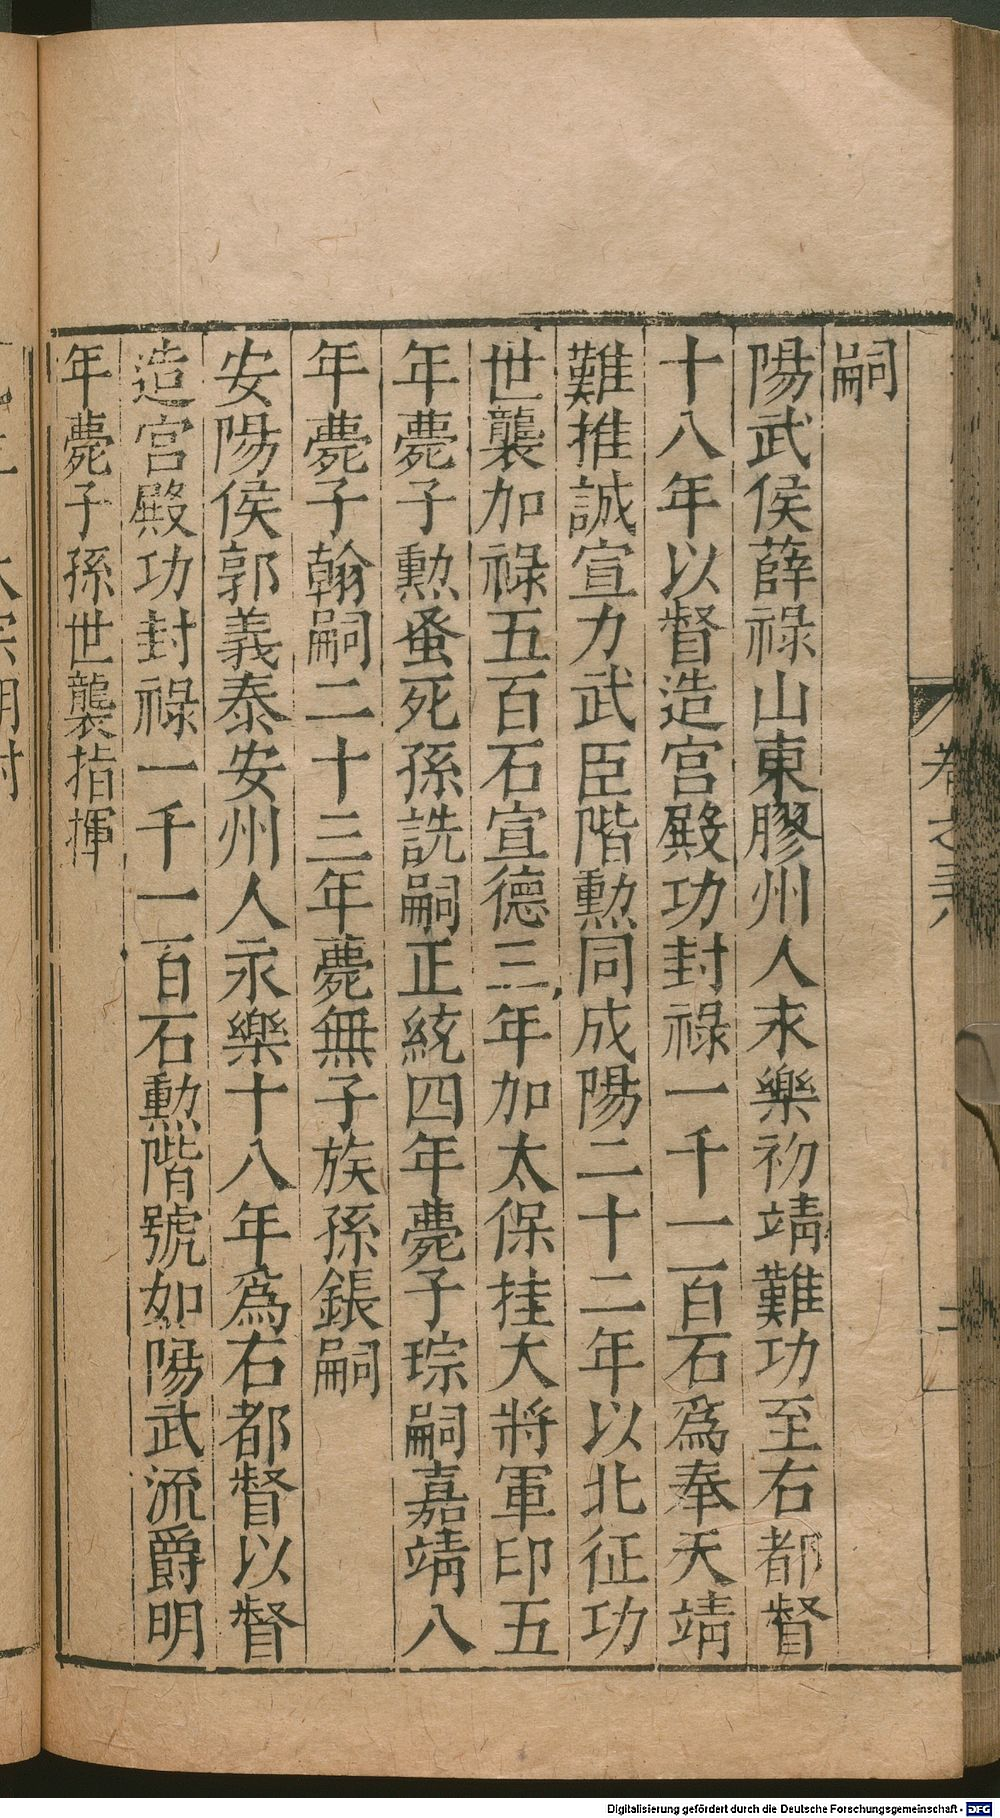 嗣
陽武侯薛祿山東膠州人永樂初靖難功至右都督
十八年以督造宮殿功封祿一千一百石爲奉天靖
難推誠宣力武臣階勲同成陽二十二年以北征功
世襲加祿五百石宣德三年加太保挂大將軍印五
年薨子勲蚤死孫詵嗣正統四年薨子琮嗣嘉靖八
年薨子翰嗣二十三年薨無子族孫鋹嗣
安陽侯郭義泰安州人永樂十八年爲右都督以督
造宮殿功封祿一千一百石勲階號如陽武流爵明
年薨子孫世襲指揮
卷之
Digitalisierung gefördert durch die Deutsche Forschungsgemeinschaft - DFG